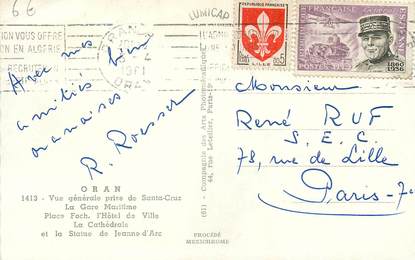 6€
ION VOUS OFFRE
ON EN ALGÉRIE
RECRUTE
ORAN
ORAN
RÉPUBLIQUE FRANÇAISE
LILLE
5
POSTES
1860
1936
Avec mes bien
amitiés
oranaises
R. Rousset
ORAN
1413 - Vue générale prise de Santa-Cruz
La Gare Maritime
Place Foch, l'Hôtel de Ville
La Cathédrale
et la Statue de Jeanne d'Arc
(61) - Compagnie des Arts Photomécaniques
44, Rue Letellier, Paris-15e
PROCÉDÉ
MEXICHROME
Monsieur
René RUF
S.E.C.
78, rue de Lille
Paris-7e